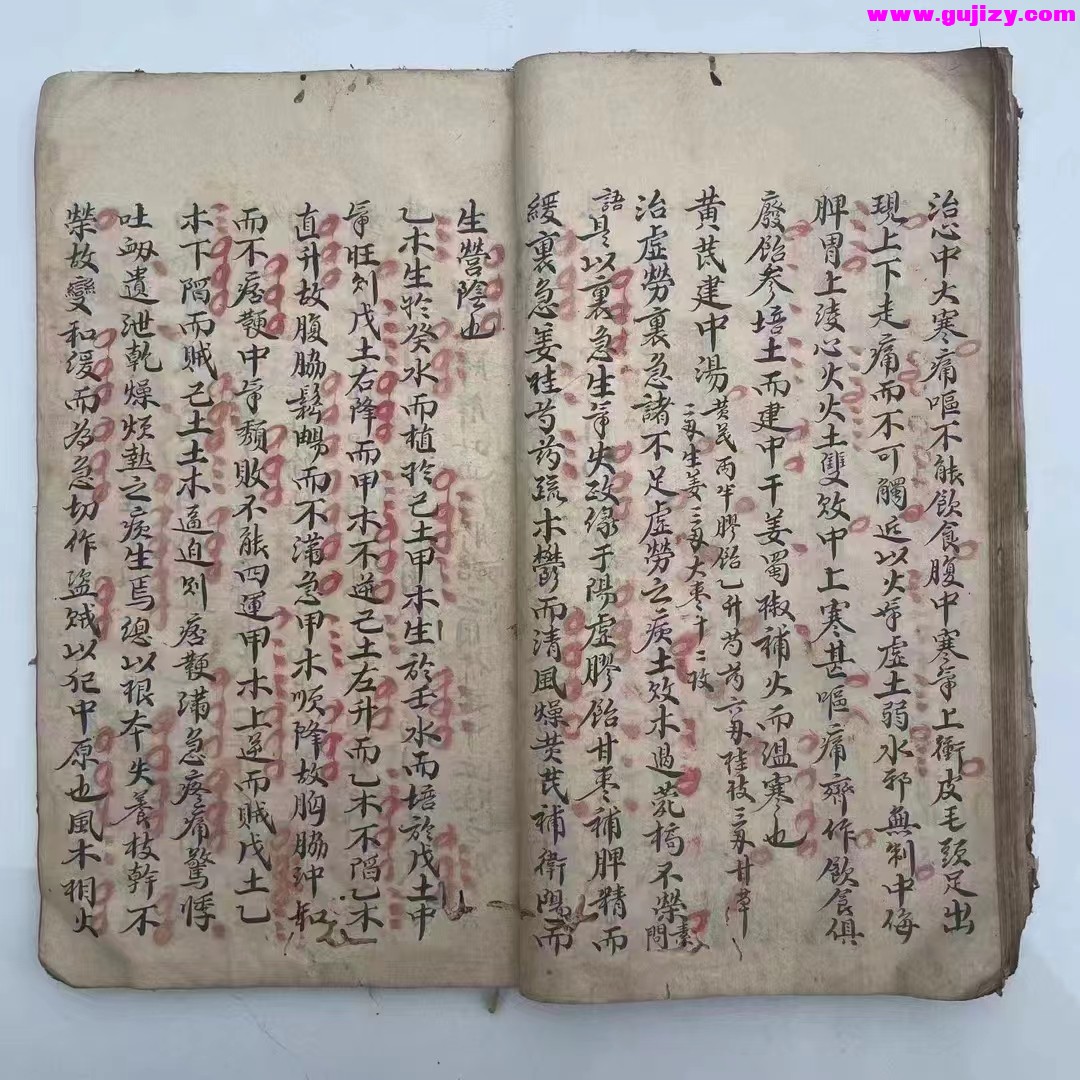 www.gujizy.com
治心中大寒痛嘔不能飲食腹中寒气上衝皮毛頭足出
現上下走痛而不可觸近以火虛土弱水邪無制中侮
脾胃上淩心火火土雙敗中上寒甚嘔痛齊作飲食俱
廢飴參培土而建中干姜蜀椒補火而溫寒也
黄芪建中湯 黄芪両半膠飴乙升芍药六刄桂枝三刄甘草二
三刄生姜三刄大棗十二枚
治虛勞裏急諸不足虛勞之病土敗木遏菀槁不榮素問
語是以裏急生气失政缘于陽虛膠飴甘枣補脾精而
緩裏急姜桂芍药疏木鬱而清風燥黄芪補衛陽而
生營陰也
乙木生於癸水而植於己土甲木生於壬水而培於戊土中
气旺则戊土右降而甲木不逆己土左升而乙木不陷乙木
直升故腹脇鬆暢而不滿急甲木順降故胸脇冲和
而不痞鞕中气頹敗不能四運甲木上逆而賊戊土乙
木下陷而賊己土土木逼迫则痞鞕满急疼痛驚悸
吐衂遺泄乾燥烦热之病生焉總以根本失養枝幹不
榮故變和缓而為急切作盜賊以犯中原也風木相火